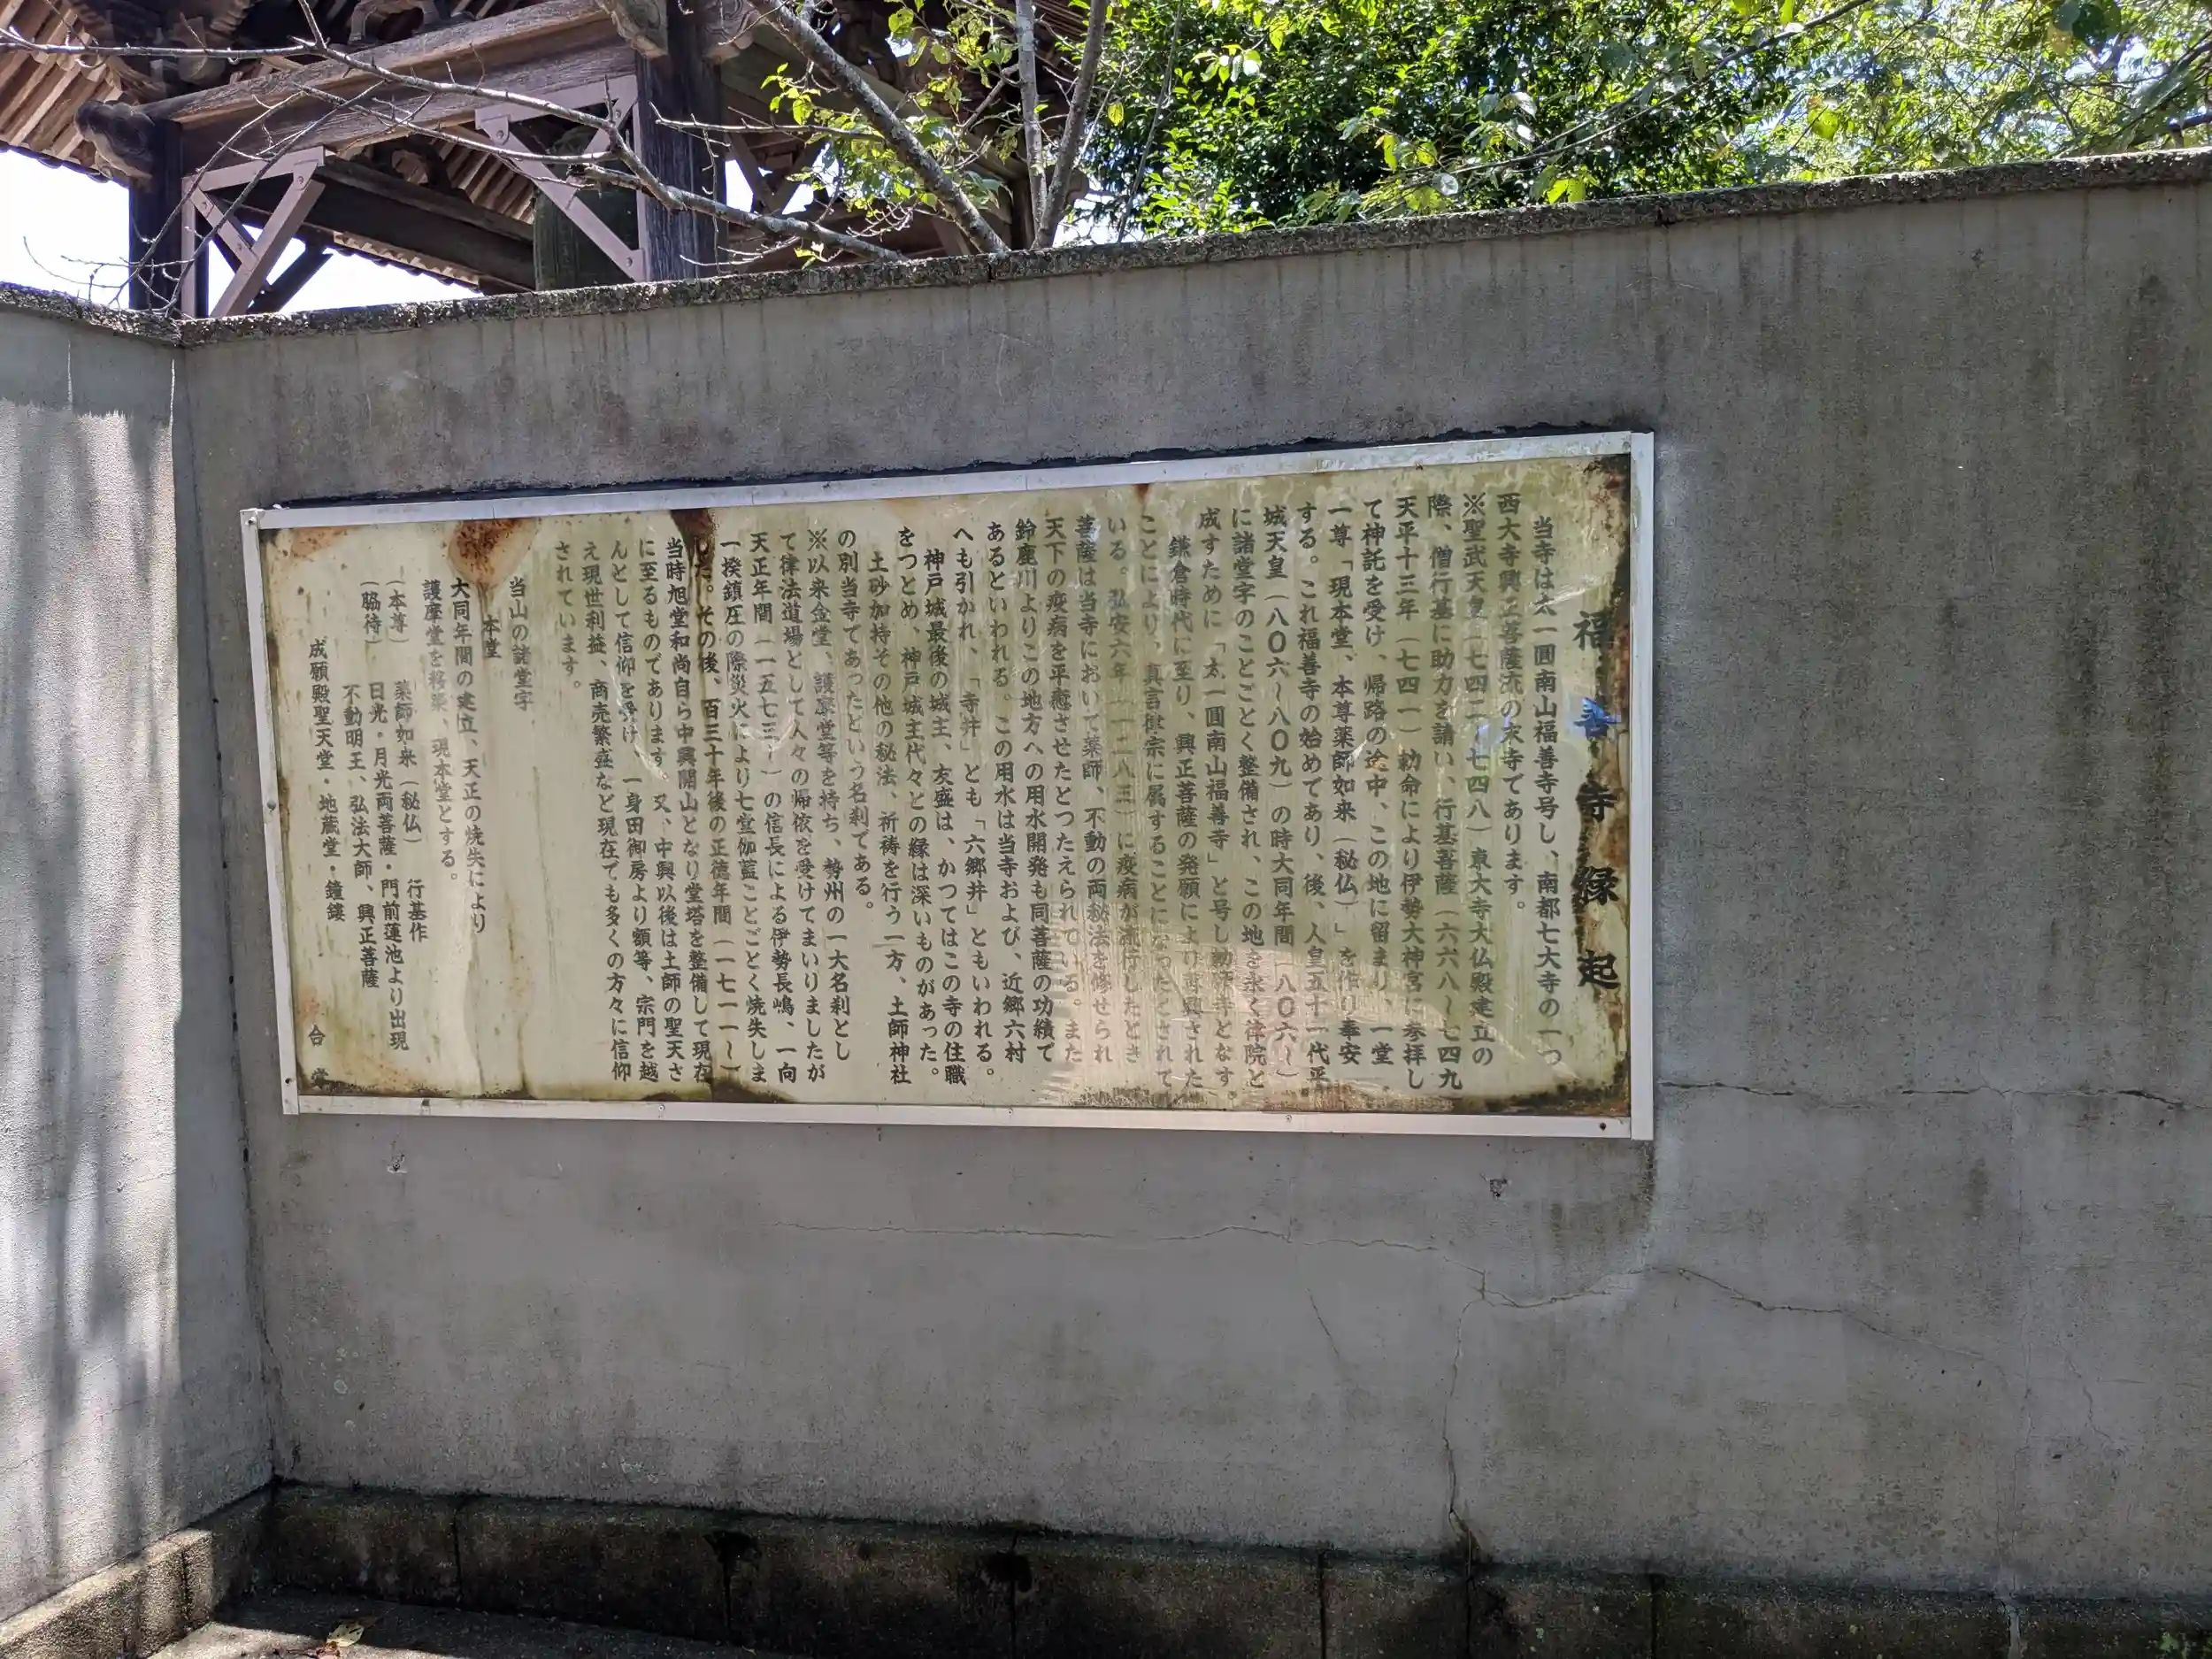 福善寺縁起
当寺は太一圓南山福善寺号し、南都七大寺の一つ
西大寺興正菩薩流の末寺であります。
※聖武天皇（七四二~七四八）東大寺大仏殿建立の
際、僧行基に助力を請い、行基菩薩（六六八~七四九
天平十三年（七四一）勅命により伊勢大神宮に参拝し
て神託を受け 帰路の途中、この地に留まり、一堂
一尊「現本堂、本尊薬師如来（秘仏）」を作り奉安
する。これ福善寺の始めであり、後、人皇五十一代平
城天皇（八〇六~八〇九）の時大同年間（八〇六~）
に諸堂字のことごとく整備され、この地を永く律院と
成すために「太一圓南山福善寺」と号し勅願寺となす
鎌倉時代に至り、興正菩薩の発願により再興された
ことにより、真言律宗に属することになったとされて
いる。弘安六年（一二八三）に疫病が流行したとき
菩薩は当寺において薬師、不動の両秘法を修せられ
天下の疫病を平癒させたとつたえられている。また
鈴鹿川よりこの地方への用水開発も同菩薩の功績で
あるといわれる。この用水は当寺および、近郷六村
へも引かれ、「寺井」とも「六郷井」ともいわれる。
神戸城最後の城主、友盛は、かつてはこの寺の住職
をつとめ、神戸城主代々との縁は深いものがあった。
土砂加持その他の秘法、祈祷を行う一方、土師神社
の別当寺であったという名刹である。
※以来金堂、護摩堂等を持ち、勢州の一大名刹とし
て律法道場として人々の帰依を受けてまいりましたが
天正年間（一五七三~）の信長による伊勢長嶋、一向
一揆鎮圧の際災火により七堂伽藍ことごとく焼失しま
した。その後、百三十年後の正徳年間（一七一一~）
当時旭堂和尚自ら中興開山となり堂塔を整備して現在
に至るものであります。又、中興以後は土師の聖天さ
んとして信仰を受け、一身田御房より額等、宗門を越
え現世利益、商売繁盛など現在でも多くの方々に信仰
されています。
当山の諸堂字
本堂
大同年間の建立、天正の焼失により
護摩堂を移築、現本堂とする。
（本尊） 薬師如来（秘仏） 行基作
（脇待） 日光・月光両菩薩・門前蓮池より出現
不動明王、弘法大師、興正菩薩
成願殿聖天堂・地蔵堂・鐘鏤
合掌